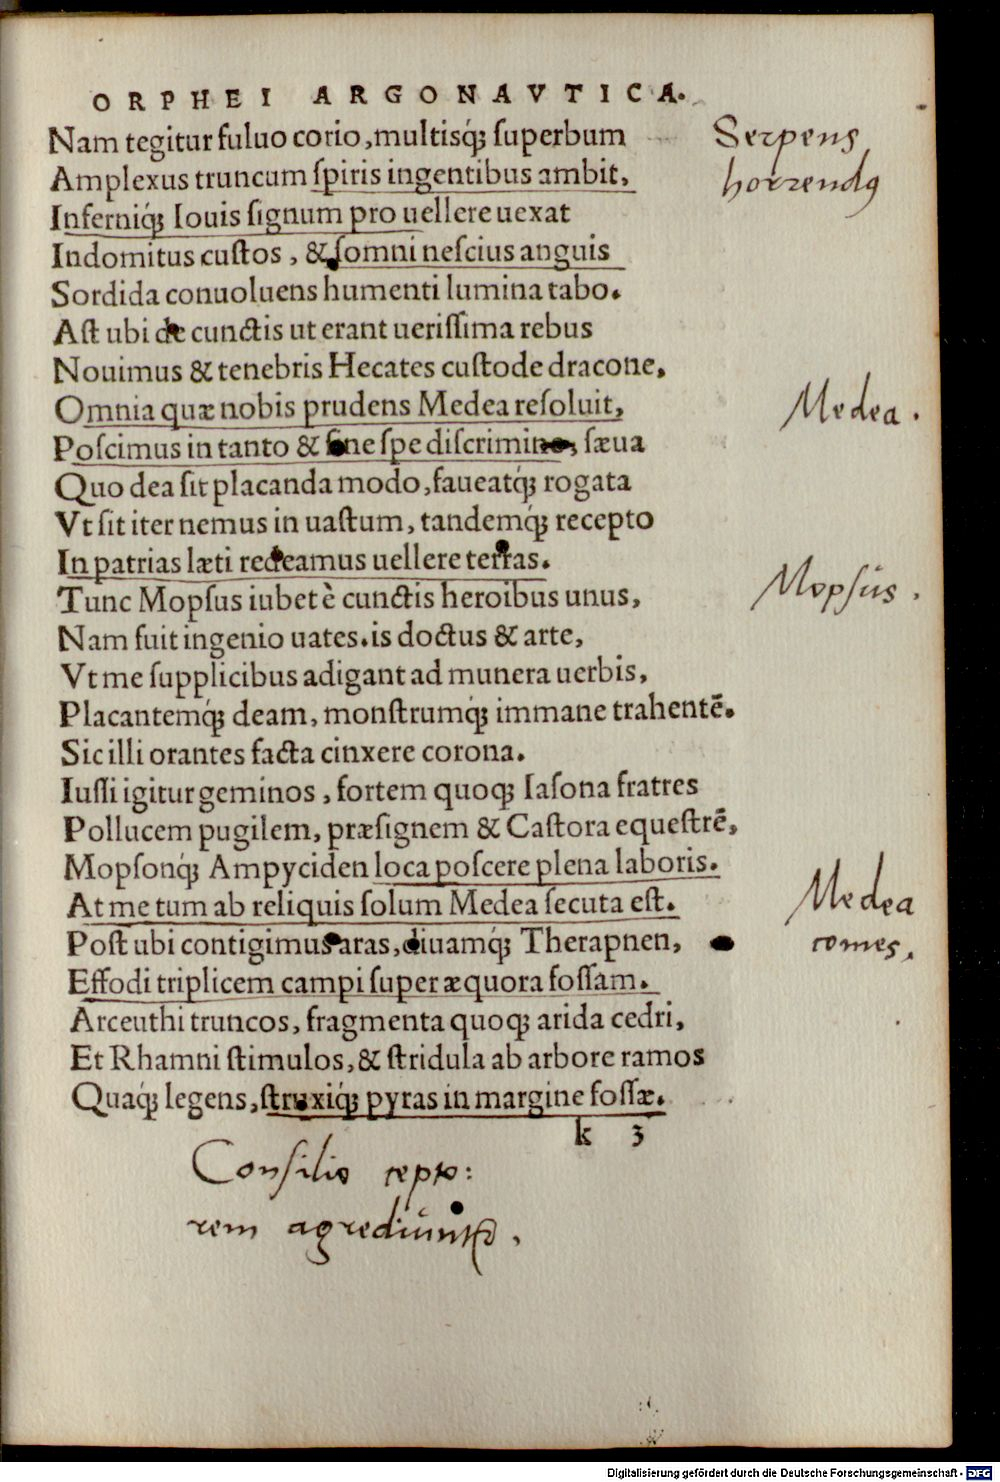 ORPHEI ARGONAVTICA.
Nam tegitur fuluo corio, multisq́; superbum
Serpens
Amplexus truncum spiris ingentibus ambit,
horrendꝯ
Inferniq́; Iouis signum pro uellere uexat
Indomitus custos, & somni nescius anguis
Sordida conuoluens humenti lumina tabo.
Ast ubi de cunctis ut erant uerissima rebus
Nouimus & tenebris Hecates custode dracone,
Omnia quæ nobis prudens Medea resoluit,
Medea.
Poscimus in tanto & sine spe discrimine, sæua
Quo dea sit placanda modo, faueatq́; rogata
Vt sit iter nemus in uastum, tandemq́; recepto
In patrias læti redeamus uellere terras.
Tunc Mopsus iubet è cunctis heroibus unus,
Mopsus.
Nam fuit ingenio uates. is doctus & arte,
Vt me supplicibus adigant ad munera uerbis,
Placantemq́; deam, monstrumq́; immane trahentē.
Sic illi orantes facta cinxere corona.
Iussi igitur geminos, fortem quoq; Iasona fratres
Pollucem pugilem, præsignem & Castora equestrē,
Mopsonq́; Ampyciden loca poscere plena laboris.
At me tum ab reliquis solum Medea secuta est.
Medea
Post ubi contigimus aras, diuamq́; Therapnen,
comes.
Effodi triplicem campi super æquora fossam.
Arceuthi truncos, fragmenta quoq; arida cedri,
Et Rhamni stimulos, & stridula ab arbore ramos
Quaq́; legens, struxiq́; pyras in margine fossæ.
k 3
Consilio cepto:
rem agrediunt̃.
Digitalisierung gefördert durch die Deutsche Forschungsgemeinschaft - DFG